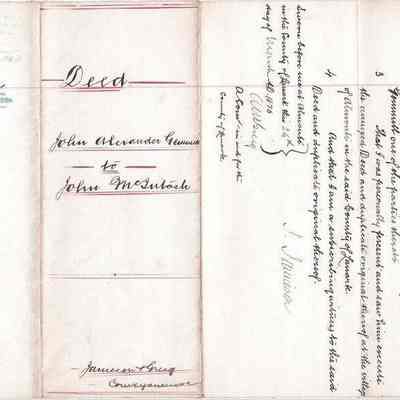 Deed
John Alexander Gemmill
to
John McIntosh
Jameson & Greig
Conveyancers
3
Gemmill one of the parties thereto
That I was personally present and saw him execute
the annexed Deed and duplicate original thereof at the village
of Almonte in the said County of Lanark.
4 And that I am a subscribing witness to the said
Deed and duplicate original thereof.
Sworn before me at Almonte
in the County of Lanark this
day of March AD 1876
A Comr in and for the
County of Lanark
J. Jamieson